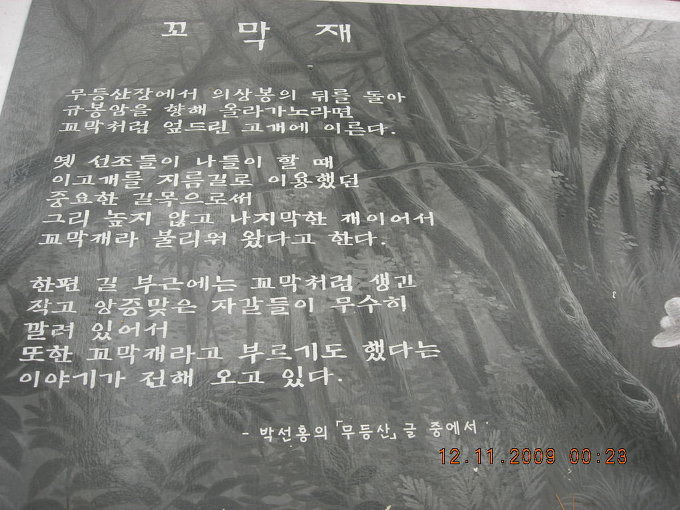 꼬막재
무등산장에서 의상봉의 뒤를 돌아
규봉암을 향해 올라가노라면
꼬막처럼 엎드린 고개에 이른다.
옛 선조들이 나들이 할 때
이고개를 지름길로 이용했던
중요한 길목으로써
그리 높지 않고 나지막한 재이어서
꼬막재라 불리워 왔다고 한다.
한편 길 부근에는 꼬막처럼 생긴
작고 앙증맞은 자갈들이 무수히
깔려 있어서
또한 꼬막재라고 부르기도 했다는
이야기가 전해 오고 있다.
- 박선홍의 「무등산」 글 중에서
12.11.2009 00:23